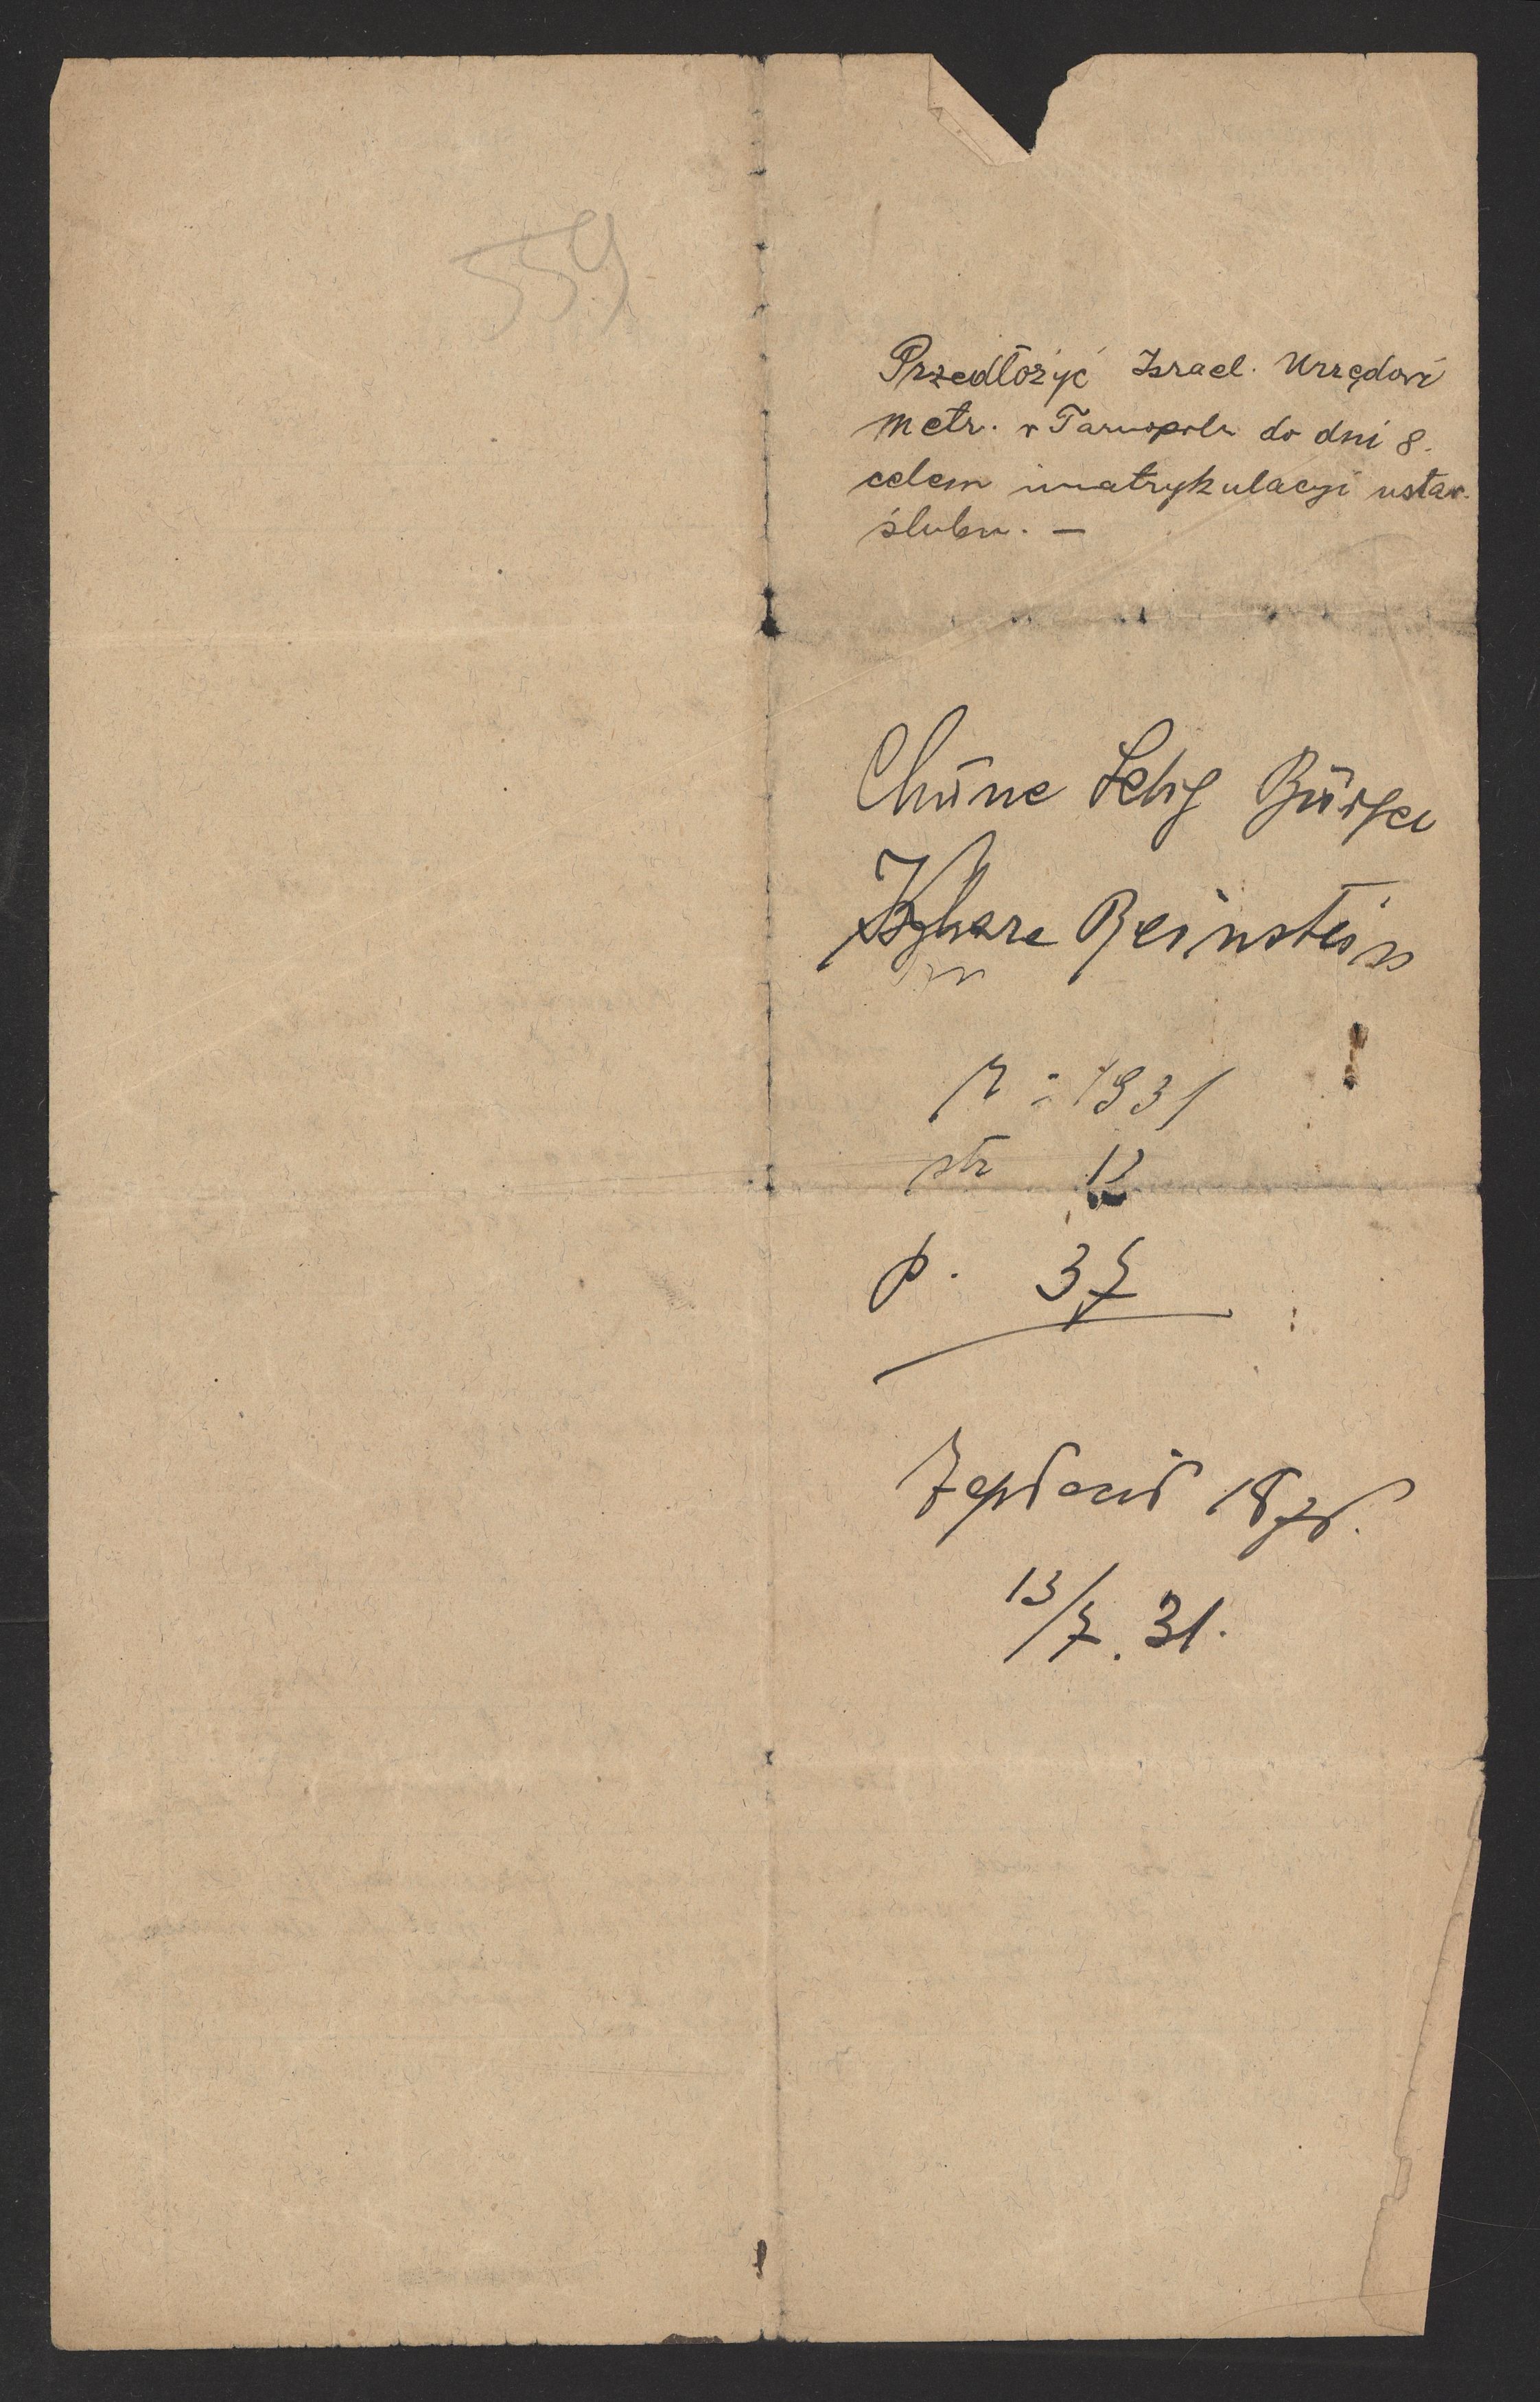 559
Przedłożyć Israel. Urzędowi
metr. w Tarnopolu do dni 8.
celem imatrykulacyi ustaw.
ślubu. —
Chüne Selig Bürger
Beinstein
r : 1931
str 12
p. 37
13/7. 31.